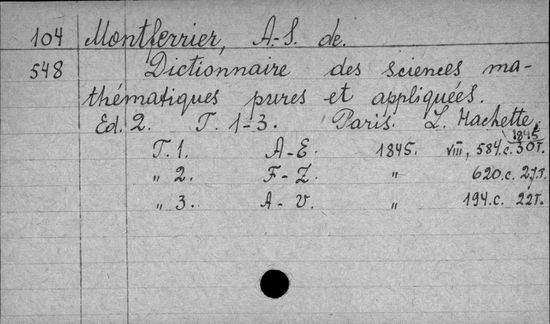 104 Montferrier, A-S. de.
548 Dictionnaire des sciences ma-
thématiques pures et appliquées.
Ed. 2. T. 1-3. Paris. L. Hachette,
1845.
T. 1. A-E. 1845. VIII, 584.c. 30т.
" 2. F-Z. " 620.c. 27т.
" 3. A-V. " 194.c. 22т.